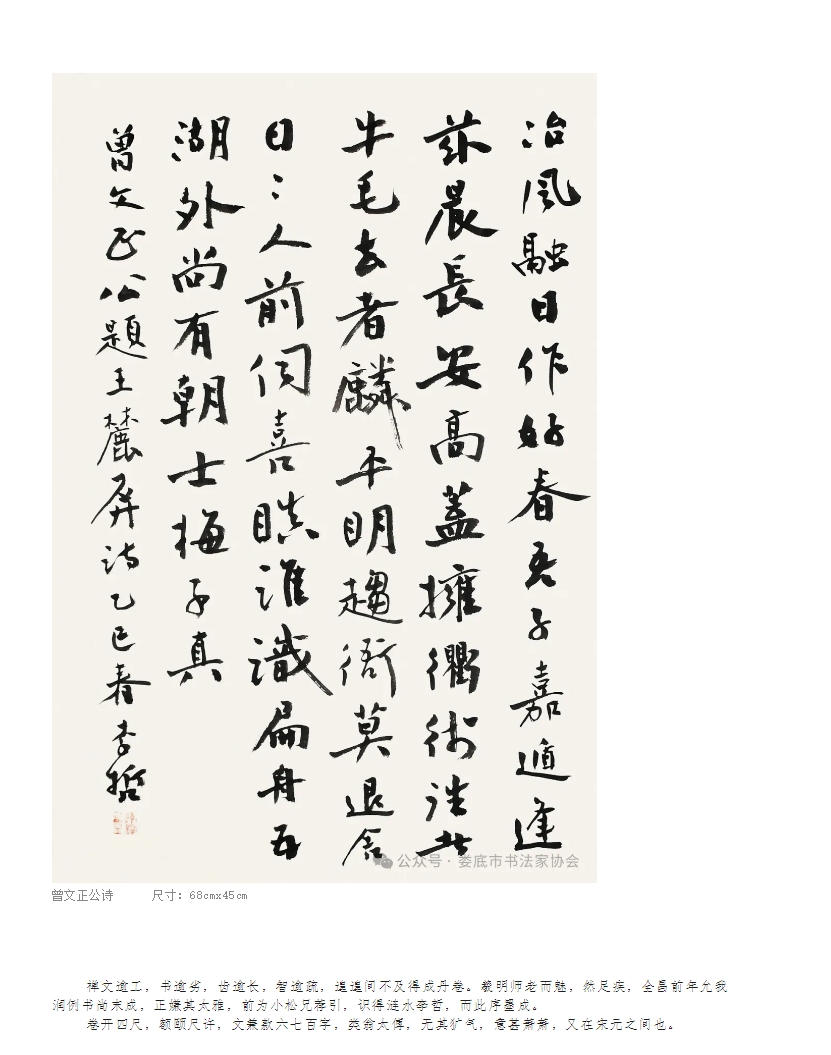 冶風融日作好春吾子嘉遁逢
茲晨長安高蓋擁衢術進者
牛毛去者麟平明趨衙莫退食
日〻人前伺喜瞋誰識扁舟五
湖外尚有朝士梅子真
曾文正公題王麓屏詩乙巳春李哲
公众号·娄底市书法家协会
曾文正公诗 尺寸：68cmx45cm
禅文逾工，书逾劣，齿逾长，智逾疏，遑遑间不及得成丹卷。羲明师老而魅，然足疾，全昌前年允我
润例书尚未成，正嫌其太雅，前为小松兄荐引，识得涟水李哲，而此序墨成。
卷开四尺，额颐尺许，文兼款六七百字，类翁太傅，无其犷气，意甚萧萧，又在宋元之间也。